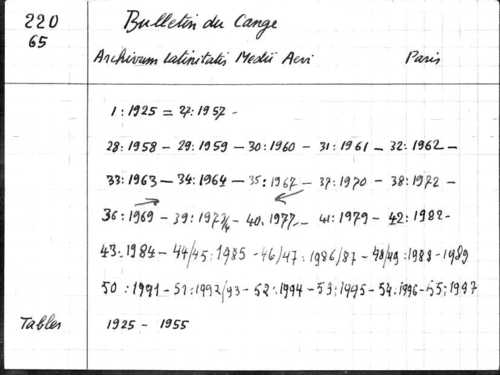 220 Bulletin du Cange
65
Archivum Latinitatis Medii Aevi Paris
1:1925 = 27:1957 -
28:1958 - 29:1959 - 30:1960 - 31:1961 - 32:1962 -
33:1963 - 34:1964 - 35:1967 - 37:1970 - 38:1972 -
36:1969 - 39:1973/4 - 40:1977 - 41:1979 - 42:1982 -
43:1984 - 44/45:1985 - 46/47:1986/87 - 48/49:1988-1989
50:1991 - 51:1992/93 - 52:1994 - 53:1995 - 54:1996 - 55:1997
Tables 1925 - 1955